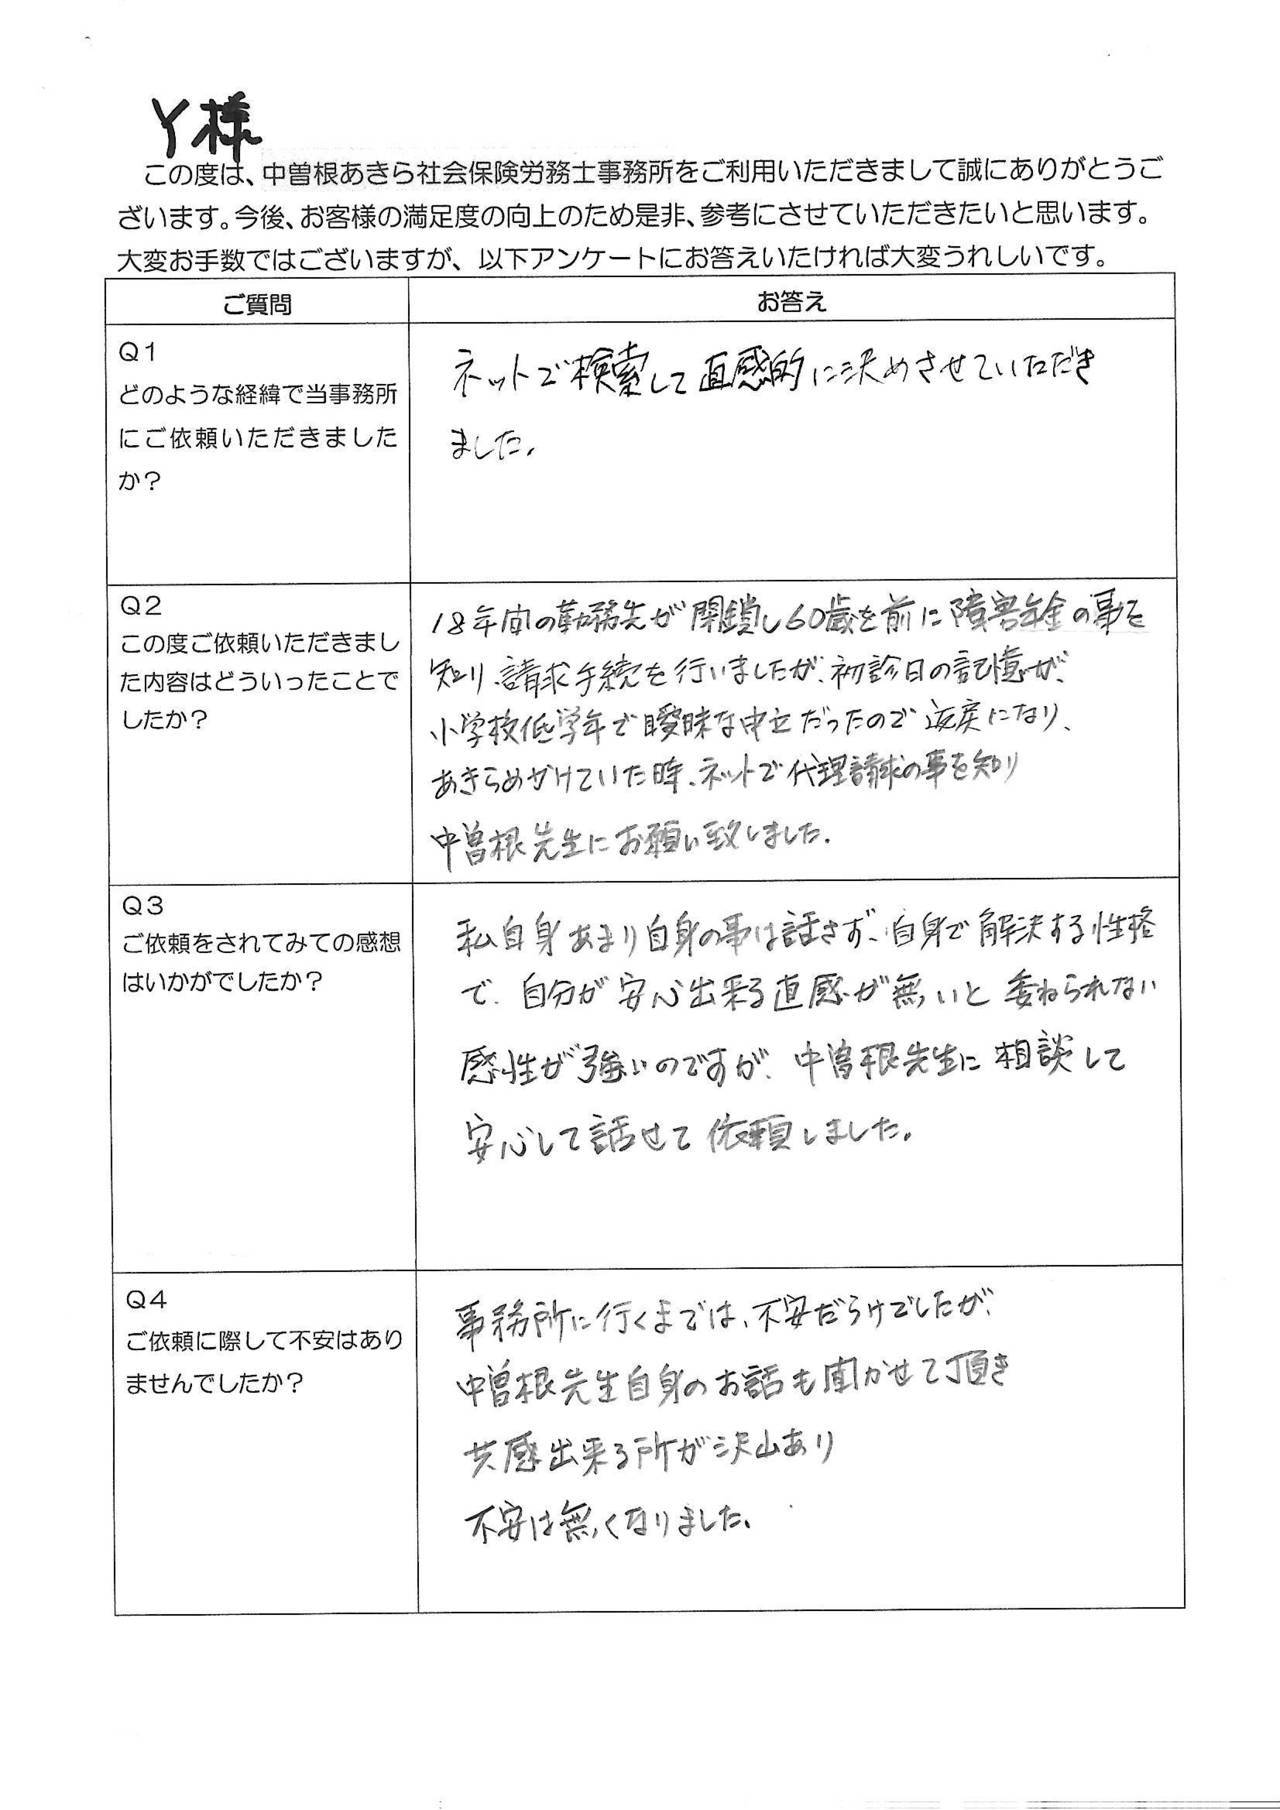 Y様
この度は、中曽根あきら社会保険労務士事務所をご利用いただきまして誠にありがとうご
ざいます。今後、お客様の満足度の向上のため是非、参考にさせていただきたいと思います。
大変お手数ではございますが、以下アンケートにお答えいたければ大変うれしいです。
ご質問
お答え
Q1
どのような経緯で当事務所
にご依頼いただきました
か？
ネットで検索して直感的に決めさせていただき
ました。
Q2
この度ご依頼いただきまし
た内容はどういったことで
したか？
18年間の勤務先が閉鎖し60歳を前に障害年金の事を
知り、請求手続を行いましたが、初診日の記憶が、
小学校低学年で曖昧な申立だったので返戻になり、
あきらめかけていた時、ネットで代理請求の事を知り
中曽根先生にお願い致しました。
Q3
ご依頼をされてみての感想
はいかがでしたか？
私自身あまり自身の事は話さず、自身で解決する性格
で、自分が安心出来る直感が無いと委ねられない
感性が強いのですが、中曽根先生に相談して
安心して話せて依頼しました。
Q4
ご依頼に際して不安はあり
ませんでしたか？
事務所に行くまでは、不安だらけでしたが、
中曽根先生自身のお話も聞かせて頂き
共感出来る所が沢山あり
不安は無くなりました。